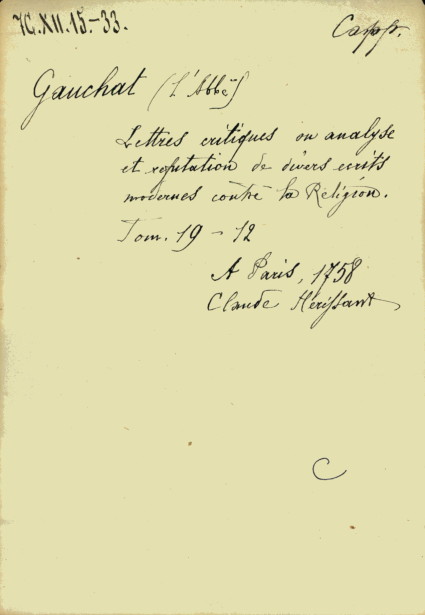 7G.XII.15.-33.
Capp.
Gauchat (l'Abbé)
Lettres critiques ou analyse
et refutation de divers ecrits
modernes contre la Religion.
Tom. 19 - 12
A Paris, 1758
Claude Herissant
C